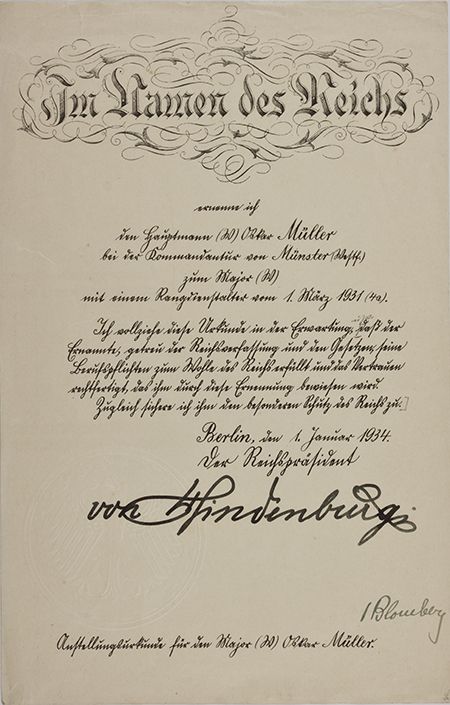 Im Namen des Reichs
ernenne ich
den Hauptmann (W) Oskar Müller
bei der Kommandantur von Münster (Westf.)
zum Major (W)
mit einem Rangdienstalter vom 1. März 1931 (4a).
Ich vollziehe diese Urkunde in der Erwartung, daß der
Ernannte, getreu der Reichsverfassung und den Gesetzen, seine
Berufspflichten zum Wohle des Reichs erfüllt und das Vertrauen
rechtfertigt, das ihm durch diese Ernennung bewiesen wird.
Zugleich sichere ich ihm den besonderen Schutz des Reichs zu.
Berlin, den 1. Januar 1934.
Der Reichspräsident
von Hindenburg
Blomberg
Anstellungsurkunde für den Major (W) Oskar Müller.